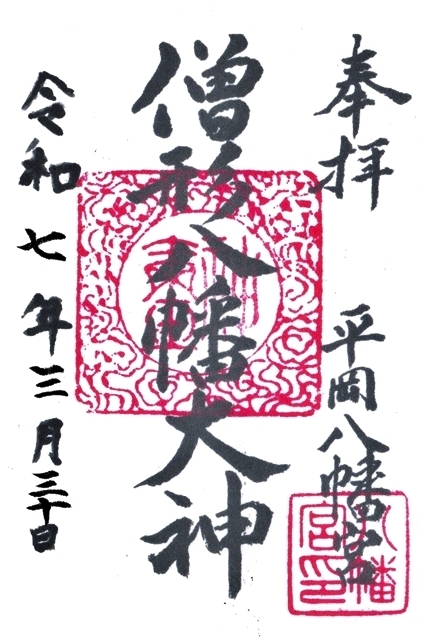 奉拝
平岡八幡宮
僧形八幡大神
令和七年三月三十日
八幡
宮印